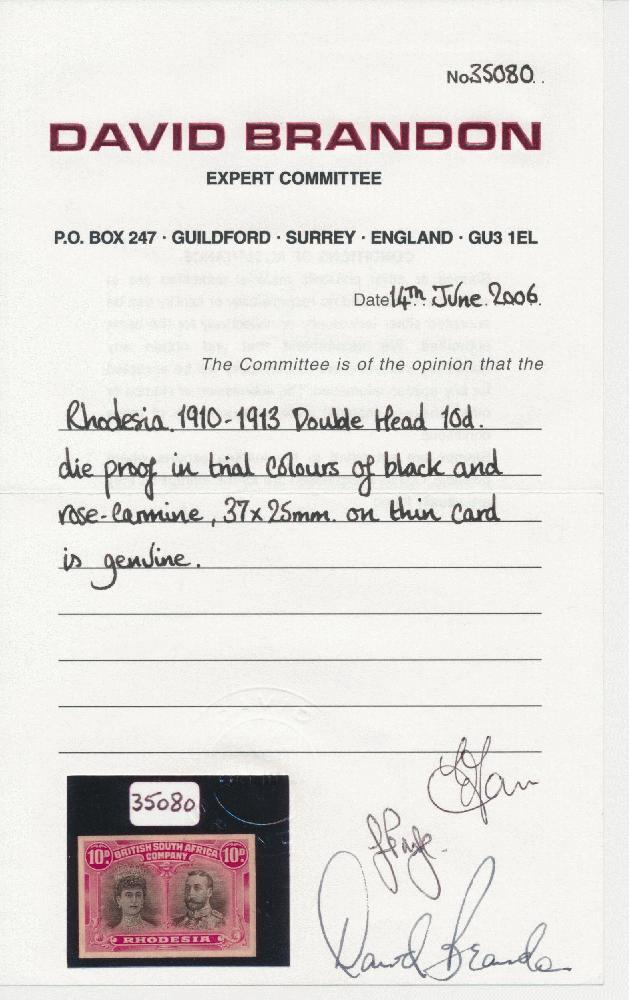 No 35080.
DAVID BRANDON
EXPERT COMMITTEE
P.O. BOX 247 · GUILDFORD · SURREY · ENGLAND · GU3 1EL
Date 14th June 2006.
The Committee is of the opinion that the
Rhodesia 1910-1913 Double Head 10d.
die proof in trial colours of black and
rose-carmine, 37x25mm. on thin card
is genuine.
35080
10D BRITISH SOUTH AFRICA 10D
COMPANY
RHODESIA
David Brandon